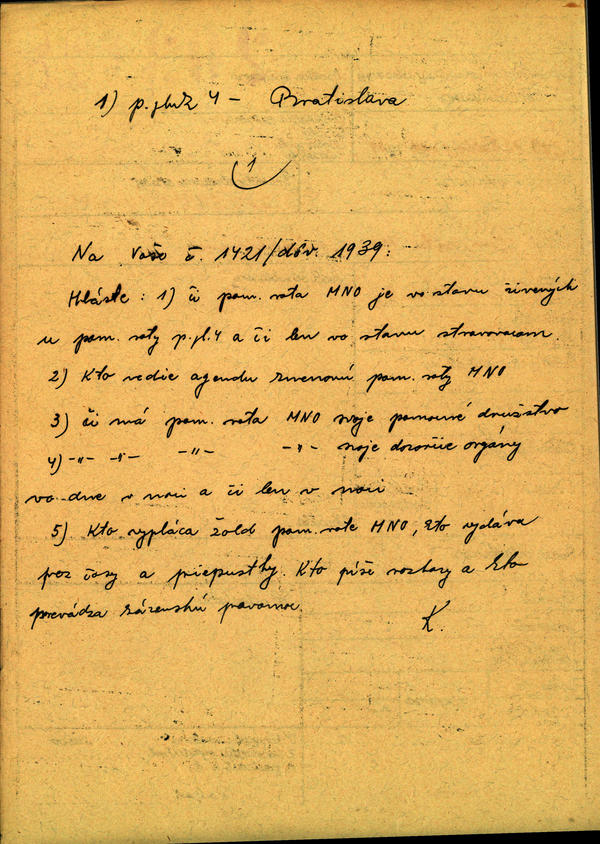 1) p. pluk 4 – Bratislava
1
Na Vaše č. 1421/dôv. 1939:
Hláste: 1) či pom. rota MNO je vo stavu živených
u pom. roty p. pl. 4 a či len vo stavu stravovacom.
2) Kto vedie agendu zmenovú pom. roty MNO
3) či má pom. rota MNO svoje pomocné družstvo
4) -"- -"- -"- -"- svoje dozorčie orgány
vo dne v noci a či len v noci
5) Kto vypláca žold pom. rote MNO, kto vydáva
prez časy a priepustky. Kto píše rozkazy a kto
prevádza kázenskú pravomoc.
K.